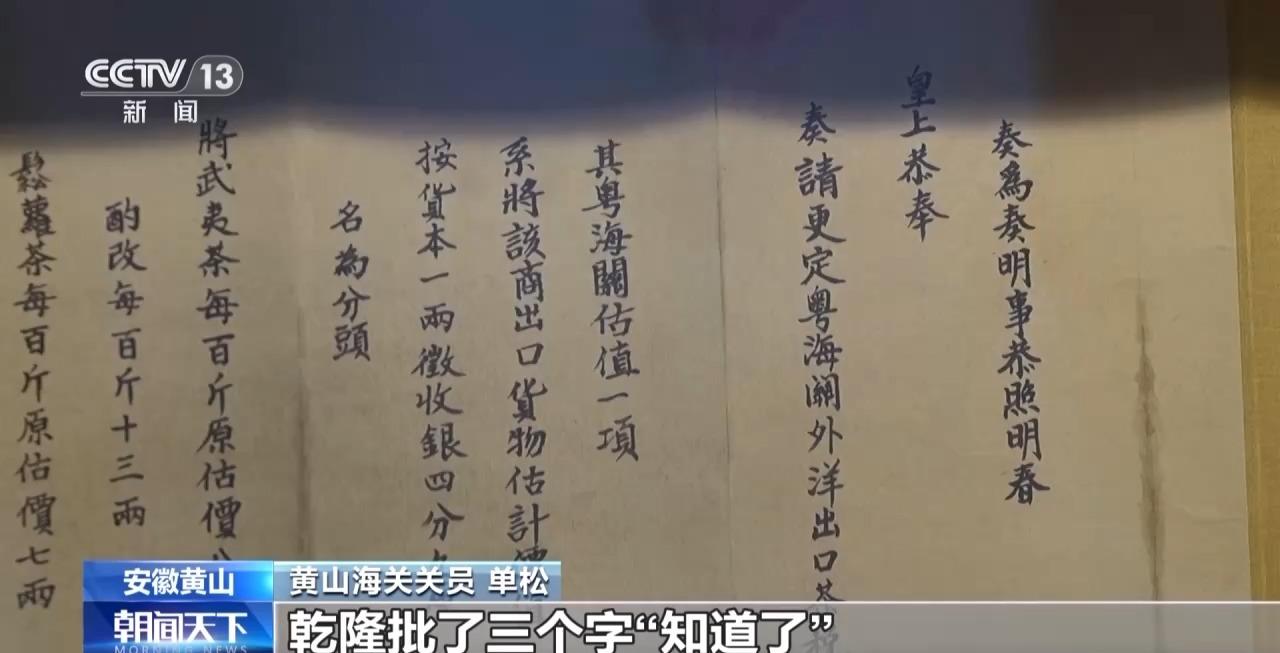 CCTV 13
新闻
奏為奏明事恭照明春
皇上恭奉
奏請更定粵海關外洋出口
其粵海關估值一項
系將該商出口貨物估計價
按貨本一兩徵收銀四分
名為分頭
將武夷茶每百斤原估價八
酌改每百斤十三兩
鬆蘿茶每百斤原估價七兩
安徽黄山
黄山海关关员 单松
朝闻天下
MORNING NEWS
乾隆批了三个字“知道了”